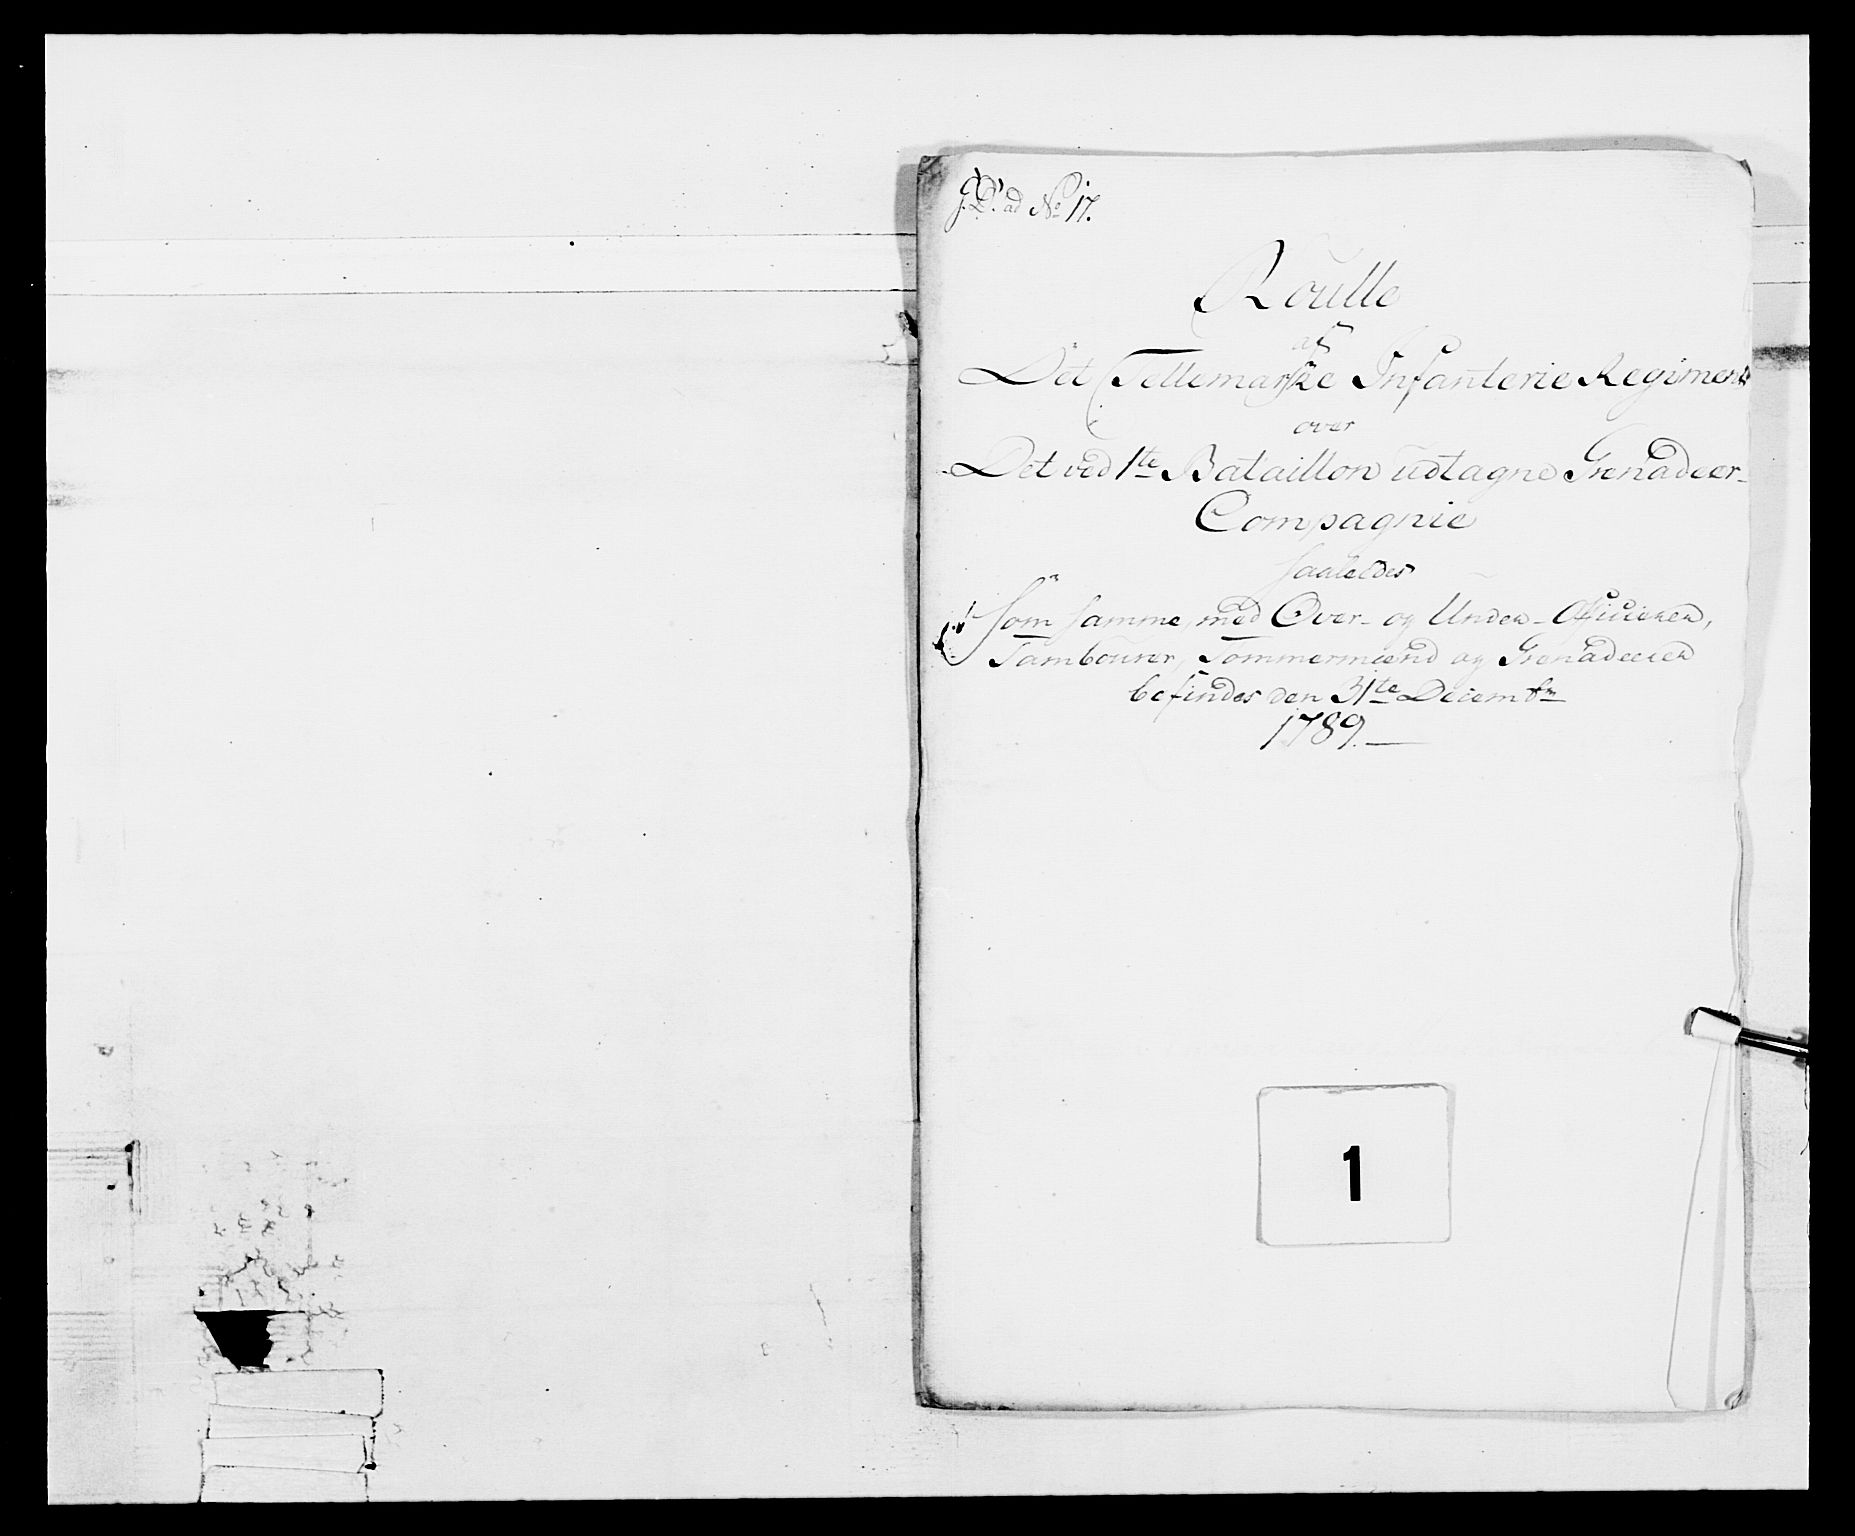 J.D. ad No 17.
Roulle
af
Det Tellemarske Infanterie Regiment
over
Det ved 1te Bataillon udtagne Grenadeer-
Compagnie
saaledes
Som samme, med Over- og Under-Officierer,
Tambourer, Tømmermænd og Grenadeerer
befindes den 31te Decembr
1789.
1